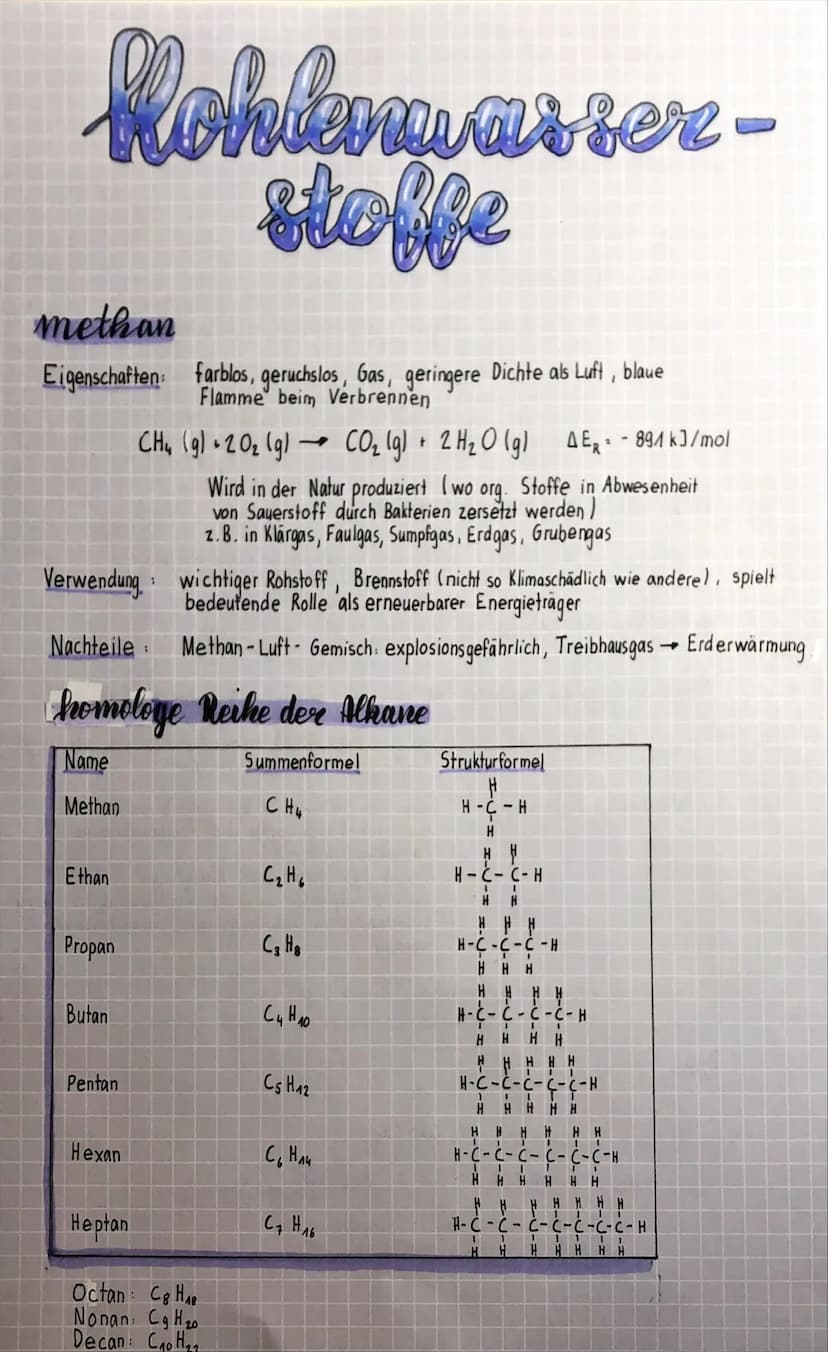 Kohlenwasser-
stoffe
methan
Eigenschaften: farblos, geruchslos, Gas, geringere Dichte als Luft, blaue
Flamme beim Verbrennen
CH₄ (g) + 2O₂ (g) → CO₂ (g) + 2H₂O (g) ΔE_R = - 891 kJ/mol
Wird in der Natur produziert (wo org. Stoffe in Abwesenheit
von Sauerstoff durch Bakterien zersetzt werden)
z.B. in Klärgas, Faulgas, Sumpfgas, Erdgas, Grubengas
Verwendung: wichtiger Rohstoff, Brennstoff (nicht so Klimaschädlich wie andere), spielt
bedeutende Rolle als erneuerbarer Energieträger
Nachteile: Methan-Luft-Gemisch: explosionsgefährlich, Treibhausgas → Erderwärmung
homologe Reihe der Alkane
Name Summenformel Strukturformel
H
Methan CH₄ H-C-H
H
H H
Ethan C₂H₆ H-C-C-H
H H
H H H
Propan C₃H₈ H-C-C-C-H
H H H
H H H H
Butan C₄H₁₀ H-C-C-C-C-H
H H H H
H H H H H
Pentan C₅H₁₂ H-C-C-C-C-C-H
H H H H H
H H H H H H
Hexan C₆H₁₄ H-C-C-C-C-C-C-H
H H H H H H
H H H H H H H
Heptan C₇H₁₆ H-C-C-C-C-C-C-C-H
H H H H H H H
Octan: C₈H₁₈
Nonan: C₉H₂₀
Decan: C₁₀H₂₂